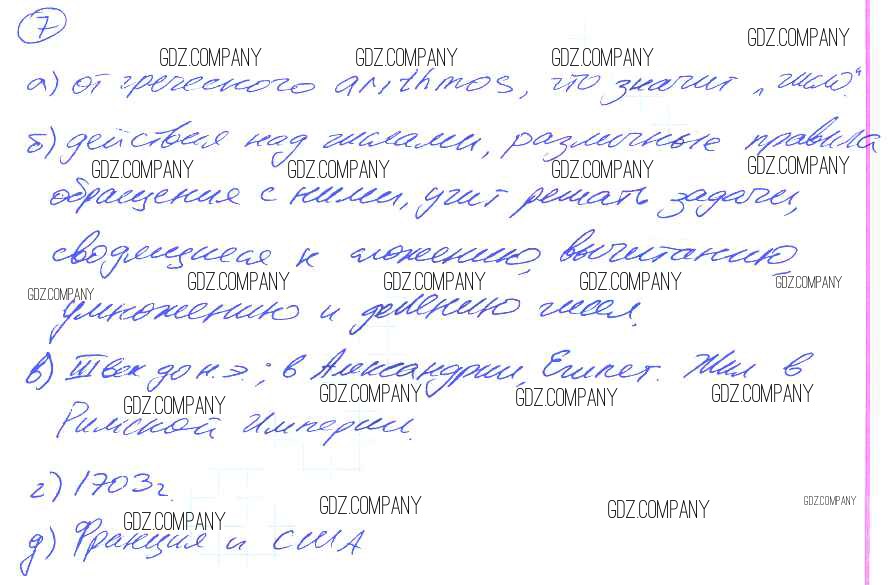 7
GDZ.COMPANY
GDZ.COMPANY GDZ.COMPANY GDZ.COMPANY
а) от греческого arithmos, что значит „число“.
б) действия над числами, различные правила
GDZ.COMPANY GDZ.COMPANY GDZ.COMPANY GDZ.COMPANY
обращения с ними, учит решать задачи,
сводящиеся к сложению, вычитанию,
GDZ.COMPANY GDZ.COMPANY GDZ.COMPANY GDZ.COMPANY GDZ.COMPANY
умножению и делению чисел.
в) III век до н.э.; в Александрии, Египет. Жил в
GDZ.COMPANY GDZ.COMPANY GDZ.COMPANY GDZ.COMPANY
Римской Империи.
г) 1703 г.
GDZ.COMPANY GDZ.COMPANY GDZ.COMPANY GDZ.COMPANY
д) Франция и США